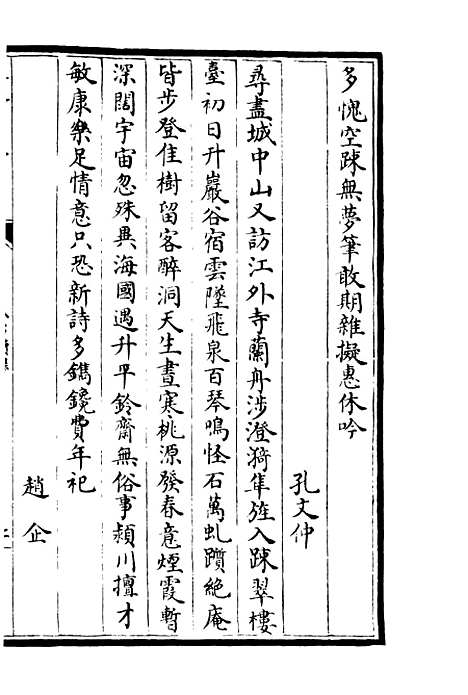 多愧空疎無夢筆敢期雜擬惠休吟
孔文仲
尋盡城中山又訪江外寺蘭舟涉澄漪隼旌入疎翠樓
臺初日升巖谷宿雲墜飛泉百琴鳴怪石萬虬躓絶庵
皆步登佳樹留客醉洞天生晝寒桃源發春意煙霞暫
深闊宇宙忽殊異海國遇升平鈴齋無俗事潁川擅才
敏康樂足情意只恐新詩多鐫鑱費年祀
趙企